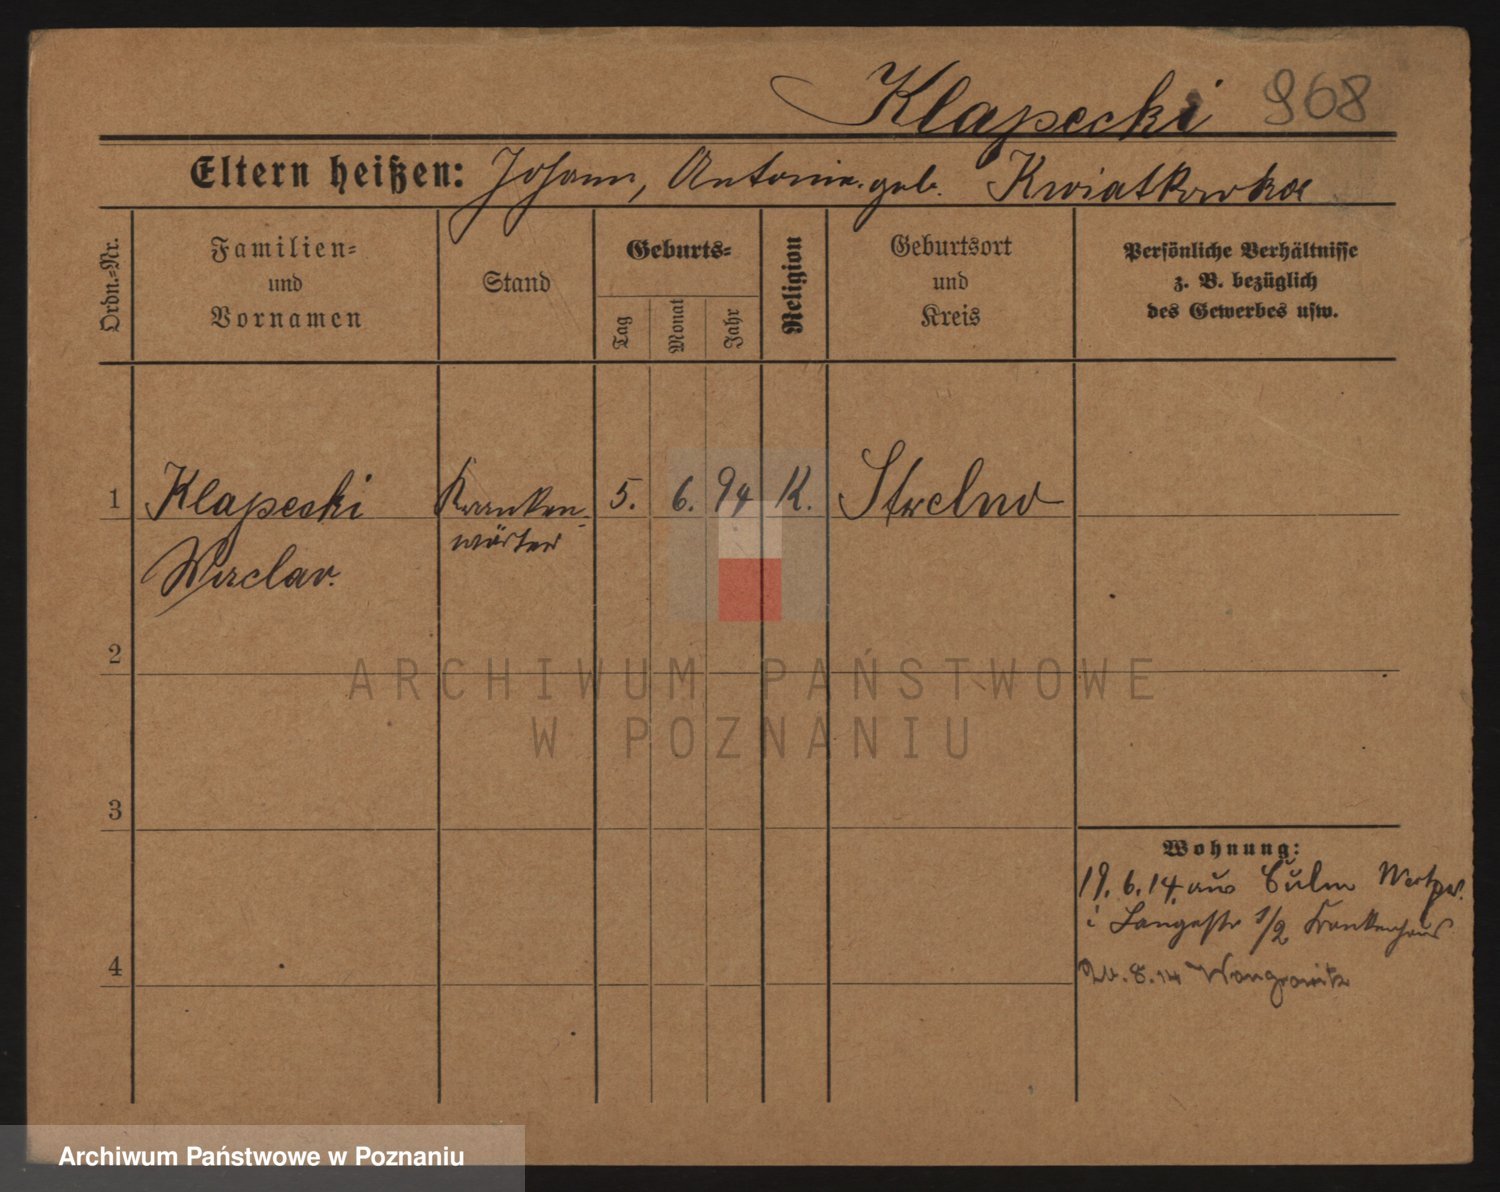 Klapecki 968
Eltern heißen: Johann, Antonie geb. Kwiatkowska
Ordn.=Nr.
Familien=
und
Vornamen
Stand
Geburts=
Tag
Monat
Jahr
Religion
Geburtsort
und
Kreis
Persönliche Verhältnisse
z. B. bezüglich
des Gewerbes usw.
1 Klapecki Kranken- 5. 6. 94 K. Strelno
wärter
Waclav.
2
3
4
Wohnung:
19. 6. 14. aus Culm Westpr.
i Langestr 1/2 Krankenhaus
8. 14 Wongrowitz
ARCHIWUM PAŃSTWOWE
W POZNANIU
Archiwum Państwowe w Poznaniu